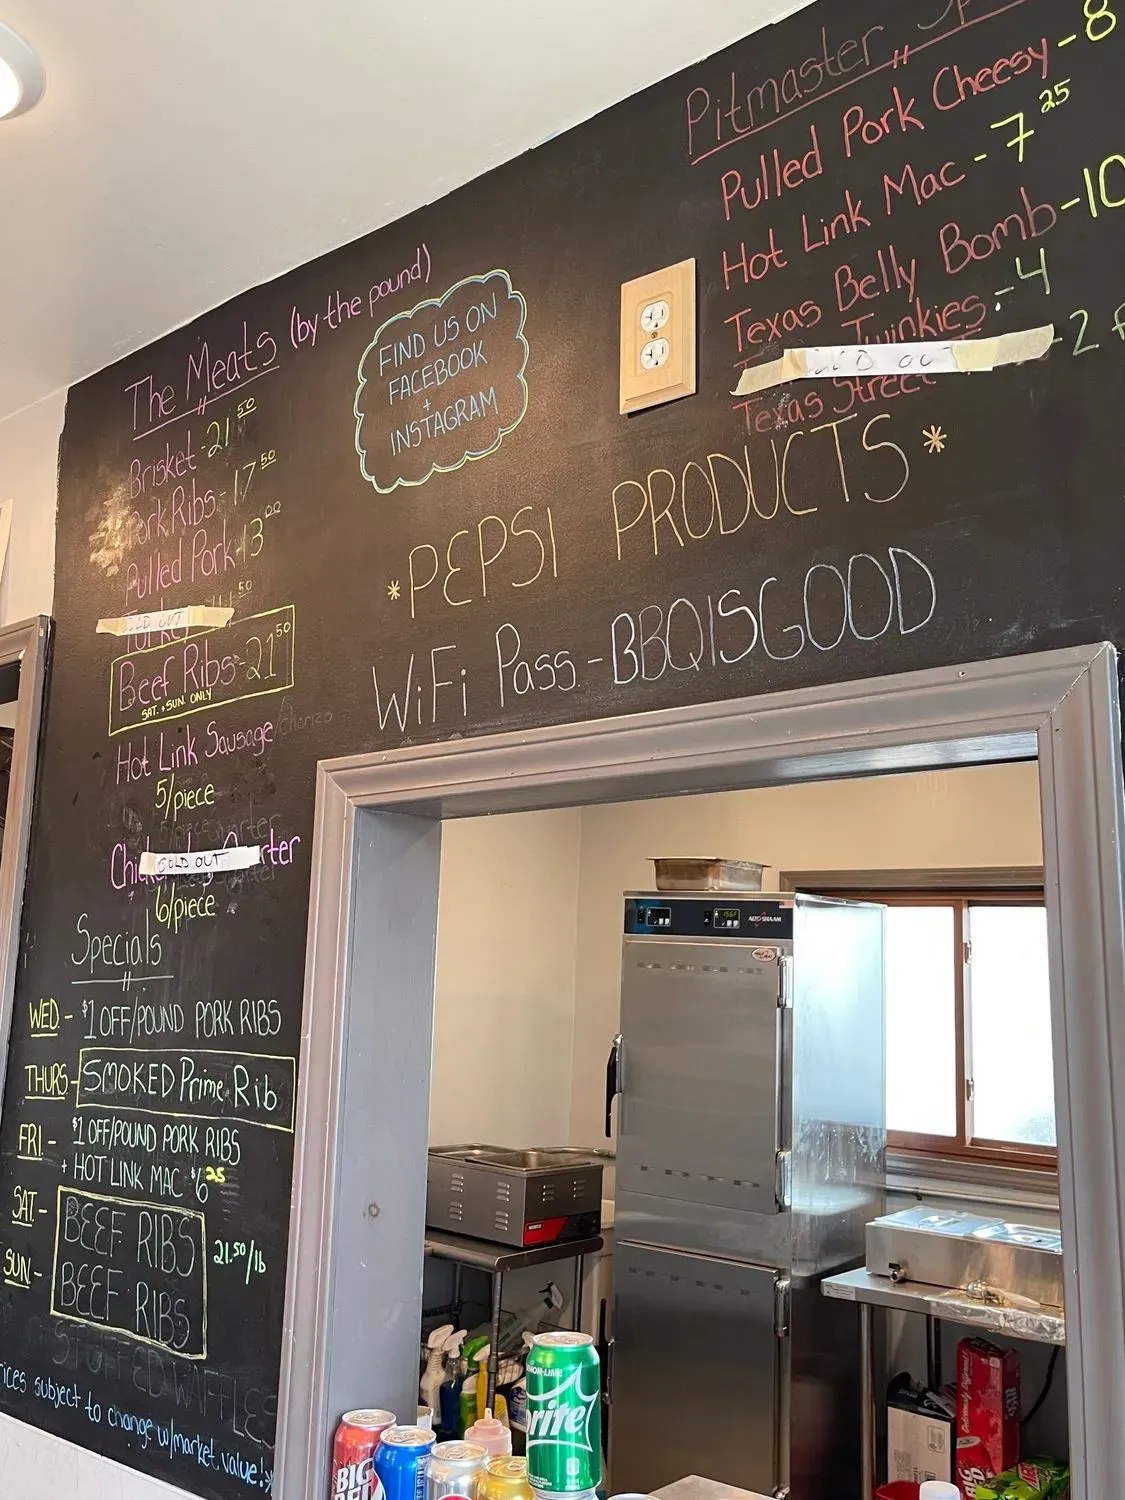 The Meats (by the pound)
Brisket - 21 50
Pork Ribs - 17 50
Pulled Pork - 13 00
Turkey 50
SOLD OUT
Beef Ribs - 21 50
SAT. + SUN. ONLY
Hot Link Sausage
5/piece
Chic rter
SOLD OUT
6/piece
Specials
WED. - $1 OFF/POUND PORK RIBS
THURS - SMOKED Prime Rib
FRI - $1 OFF/POUND PORK RIBS
+ HOT LINK MAC $6 25
SAT. - BEEF RIBS
SUN - BEEF RIBS
21.50/lb
STUFFED WAFFLES
rices subject to change w/market value!
FIND US ON
FACEBOOK
+
INSTAGRAM
Pitmaster
Pulled Pork Cheesy - 8
Hot Link Mac - 7 25
Texas Belly Bomb - 10
Twinkies - 4
SOLD OUT
- 2
Texas Street
*PEPSI PRODUCTS*
WiFi Pass - BBQISGOOD
ALTO-SHAAM
NEMCO
LEMON-LIME
Sprite
BIG
RED